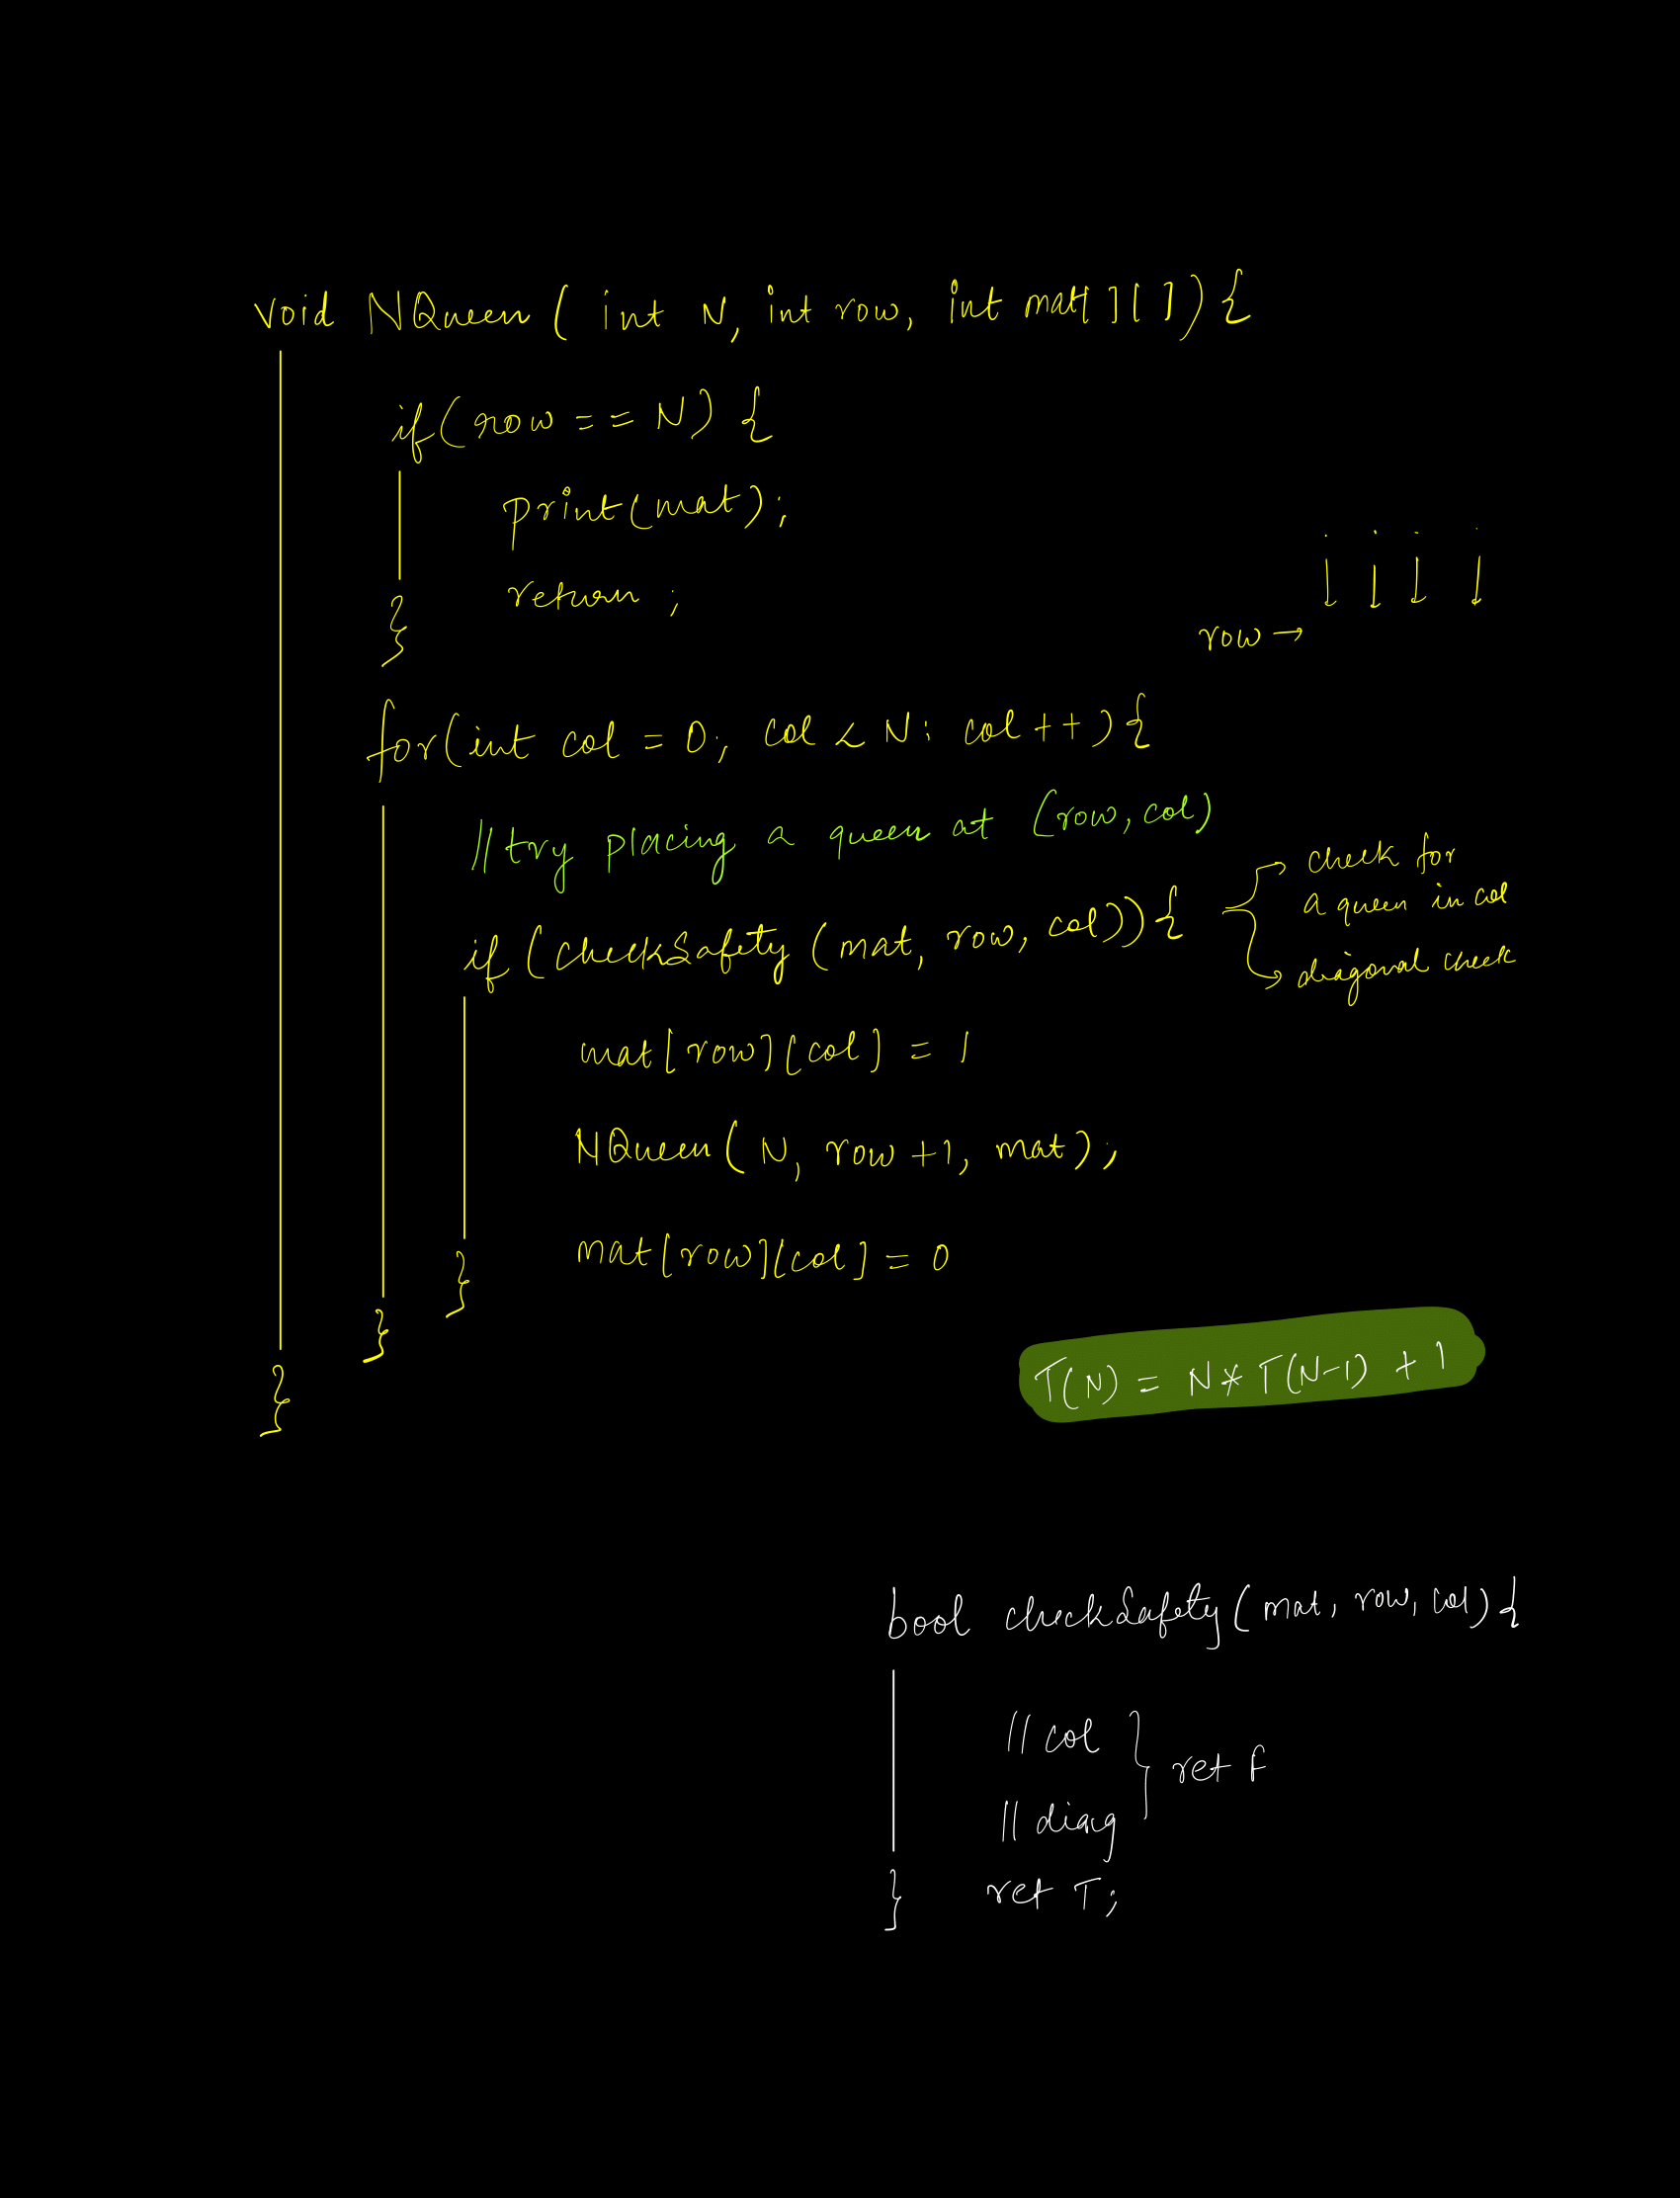 void NQueen ( int N, int row, int mat[ ][ ] ) {
if (row == N) {
print(mat);
return ;
}
row →
for(int col = 0; col < N; col ++ ) {
// try placing a queen at (row, col)
if (checkSafety (mat, row, col)) {
check for
a queen in col
diagonal check
mat[row][col] = 1
NQueen ( N, row +1, mat);
mat[row][col] = 0
}
}
}
T(N) = N * T(N-1) + 1
bool checkSafety ( mat, row, col) {
// col
// diag
} ret F
ret T;
}